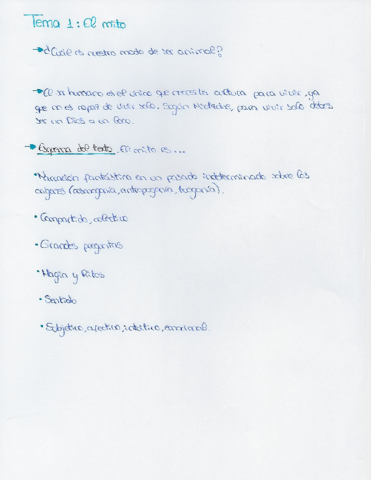 Tema 1: El mito
→¿Cuál es nuestro modo de ser animal?
→El ser humano es el único que necesita cultura para vivir, ya
que no es capaz de vivir solo. Según Nietzsche, para vivir solo debes
ser un Dios o un loco.
→Esquema del texto. El mito es...
•Narración fantástica en un pasado indeterminado sobre los
orígenes (cosmogonía, antropogonía, teogonía).
•Compartido, colectivo
•Grandes preguntas
•Magia y Ritos
•Sentido
•Subjetivo, afectivo, intuitivo, emocional.